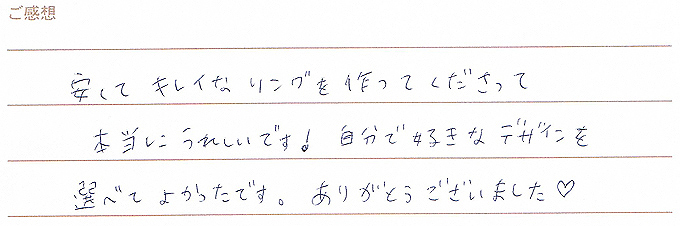 ご感想
安くて キレイな リングを 作って くださって
本当に うれしいです! 自分で 好きな デザインを
選べて よかったです。 ありがとう ございました♡